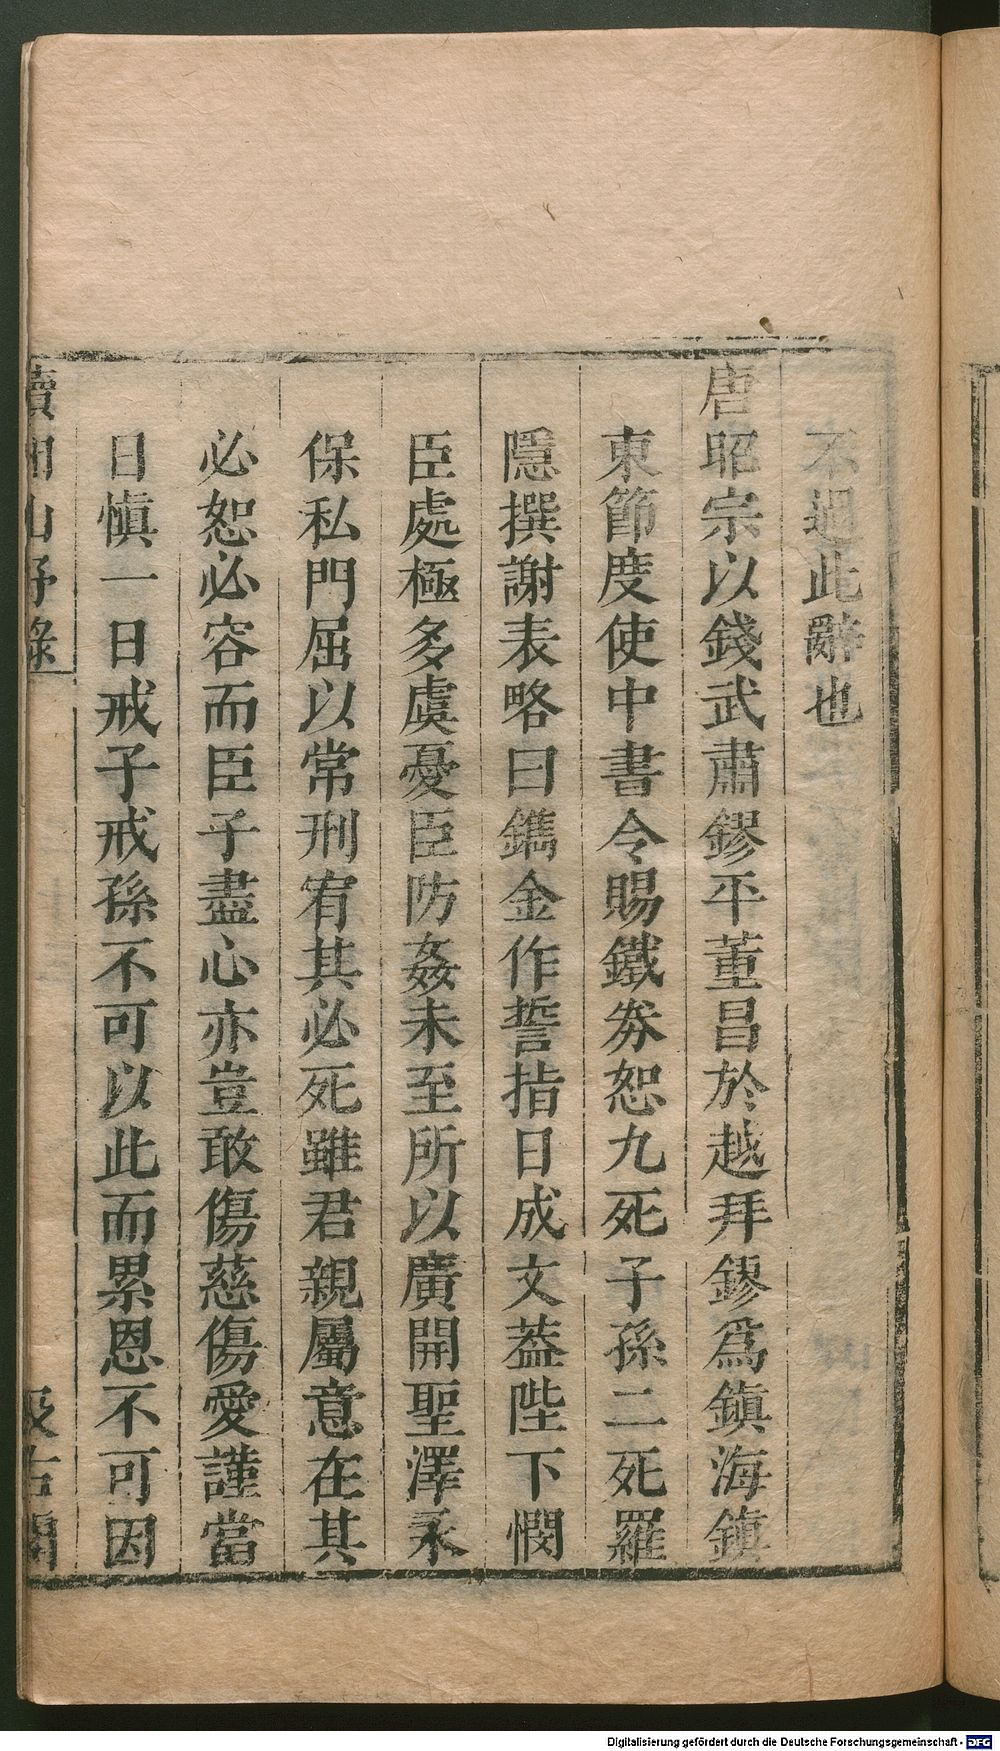 不過此辭也
唐昭宗以錢武肅鏐平董昌於越拜鏐爲鎮海鎮
東節度使中書令賜鐵劵恕九死子孫二死羅
隱撰謝表略曰鐫金作誓指日成文葢陛下憫
臣處極多虞憂臣防姦未至所以廣開聖澤永
保私門屈以常刑宥其必死雖君親屬意在其
必恕必容而臣子盡心亦豈敢傷慈傷愛謹當
日愼一日戒子戒孫不可以此而累恩不可因
續湘山野錄
汲古閣
Digitalisierung gefördert durch die Deutsche Forschungsgemeinschaft - DFG